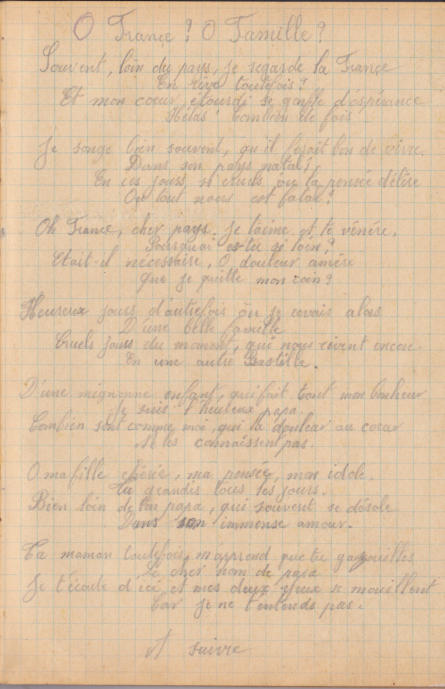 O France ? O Famille ?
Souvent, loin du pays, je regarde la France
En rêve toutefois ?
Et mon coeur, étourdi se gonfle d'espérance
Hélas ! Combien de fois
Je songe bien souvent, qu'il ferait bon de vivre
Dans son pays natal,
En ces jours, si cruels où la pensée délire
Ou tout nous est fatal ?
Oh France, cher pays. Je t'aime et te vénère.
Pourquoi es-tu si loin ?
Etait-il nécessaire, O douleur amère
Que je quitte mon coin ?
Heureux jours d'autrefois où je rêvais alors
D'une belle famille
Cruels jours du moment, qui nous rivent encore
En une autre Bastille.
D'une mignonne enfant, qui fait tout mon bonheur
Je suis l'heureux papa.
Combien sont comme moi, qui la douleur au coeur
Ne les connaissent pas.
O ma fille chérie, ma pensée, mon idole.
Tu grandis tous les jours.
Bien loin de ton papa, qui souvent se désole
Dans son immense amour.
Ta maman toutefois, m'apprend que tu gazouilles
Le cher nom de papa
Je t'écoute d'ici et mes deux yeux se mouillent
Car je ne t'entends pas.
A suivre